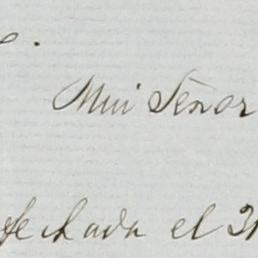 Mui Señor
fechada el 31